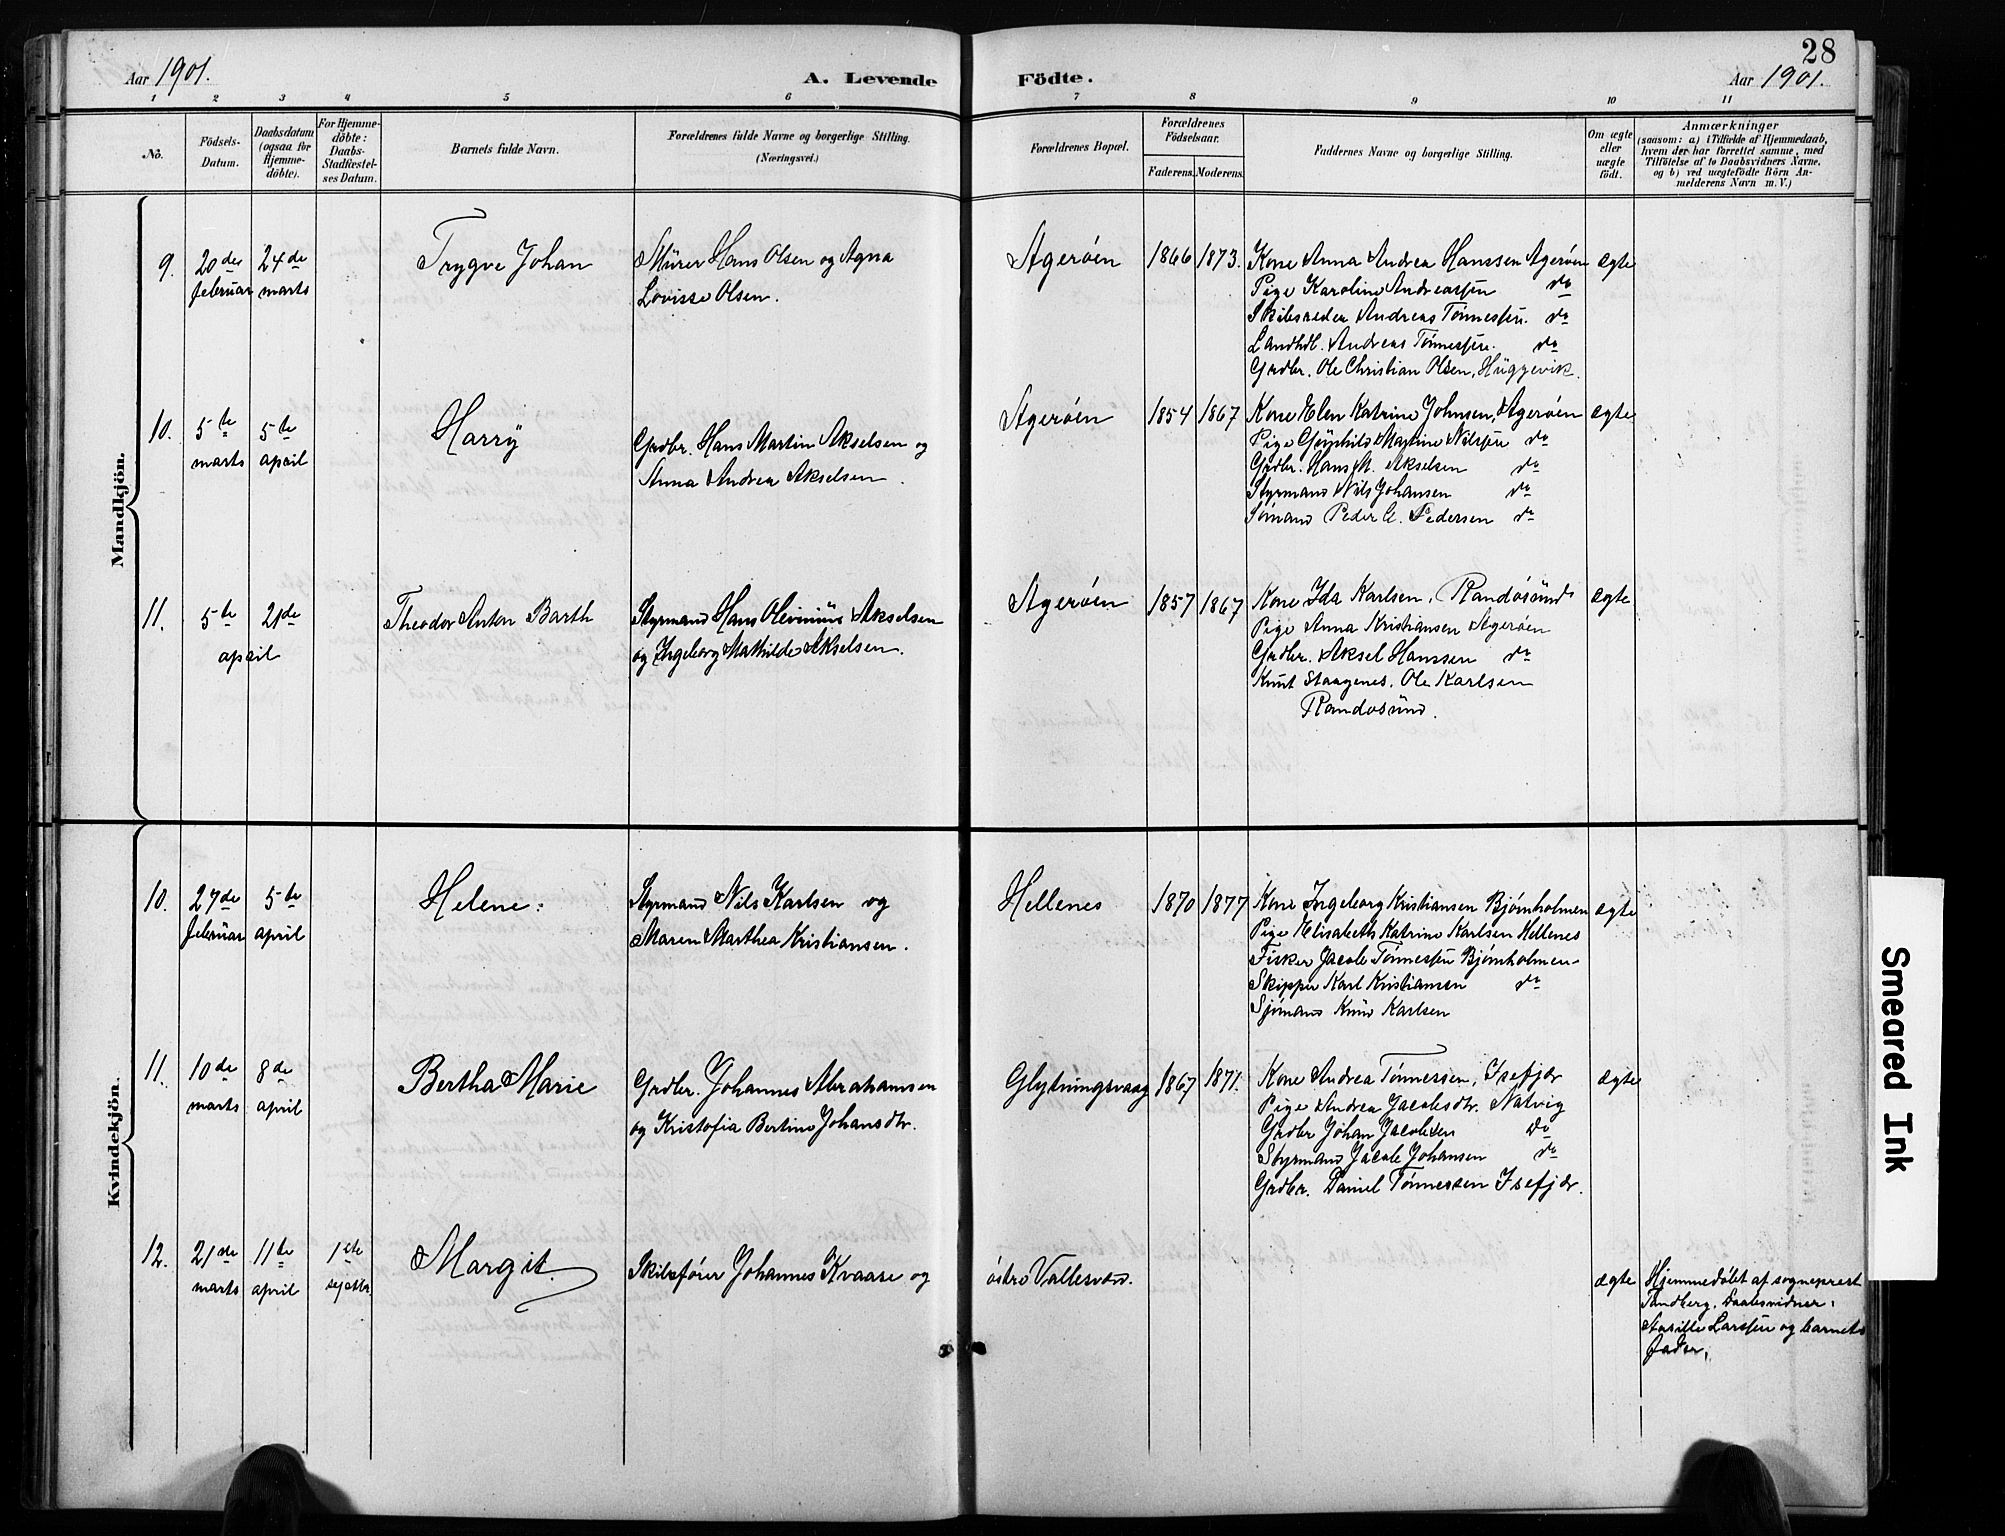 28
Aar 1901.
A. Levende Födte.
Aar 1901.
1 2 3 4 5 6 7 8 9 10 11
No.
Födsels-Datum.
Daabsdatum (ogsaa for Hjemme-döbte).
For Hjemme-döbte: Daabs-Stadfæstel-ses Datum.
Barnets fulde Navn.
Forældrenes fulde Navne og borgerlige Stilling.
(Næringsvei.)
Forældrenes Bopæl.
Forældrenes Födselsaar.
Faderens. Moderens.
Faddernes Navne og borgerlige Stilling.
Om ægte eller uægte födt.
Anmærkninger
(saasom: a) i Tilfælde af Hjemmedaab,
hvem der har forrettet samme, med
Tilföielse af to Daabsvidners Navne,
og b) ved uægtefödte Börn An-
melderens Navn m. V.)
Mandkjön.
9. 20de februar 24de marts
Trygve Johan
Mürer Hans Olsen og Agna
Lovisse Olsen.
Agerøen 1866 1873.
Kone Anna Andrea Hanssen Agerøen
Pige Karoline Andreassen do
Skibsreder Andreas Tønnessen. do
Landhdl. Andreas Tønnessen. do
Grdbr. Ole Christian Olsen, Hüggevik.
ægte
10. 5te marts 5te april
Harrÿ
Grdbr. Hans Martin Akselsen og
Anna Andrea Akselsen.
Agerøen 1854 1867
Kone Elen Katrine Johnsen, Agerøen
Pige Martine Nilssen do
Grdbr. Hans M. Akselsen do
Styrmand Nils Johansen do
Sømand Peder C. Pedersen do
ægte
11. 5te 21de april
Theodor Anton Barth
Styrmand Hans Oliviniüs Akselsen
og Ingeborg Mathilde Akselsen.
Agerøen 1857 1867
Kone Ida Karlsen, Randøsünd
Pige Anna Kristiansen Agerøen
Grdbr. Aksel Hanssen do
Knüt Staagenes, Ole Karlsen
Randøsünd.
ægte
Kvindekjön.
10. 27de februar 5te april
Helene.
Styrmand Nils Karlsen og
Maren Marthea Kristiansen.
Hellenes 1870 1877
Kone Ingeborg Kristiansen Bjørnholmen
Pige Elisabeth Katrine Karlsen Hellenes
Fisker Jacob Tønnessen Bjørnholmen
Skipper Karl Kristiansen do
Sjømand Knüd Karlsen
ægte
11. 10de marts 8de april
Bertha Marie
Grdbr. Johannes Abrahamsen
og Kristofia Bertine Johansdtr.
Glytningsvaag 1867 1871.
Kone Andrea Tønnessen, Isefjær
Pige Andrea Jacobsdtr. Natvig
Grdbr Johan Jacobsen do
Styrmand Jacob Johansen do
Grdbr. Daniel Tønnessen Isefjær.
ægte
12. 21de marts 11te april 1ste septbr.
Margit.
Skibsfører Johannes Kvaase og
østre Vallesværd.
ægte
Hjemmedøbt af sogneprest
Tandberg. Daabsvidner:
Larssen og barnets
fader.
Smeared Ink